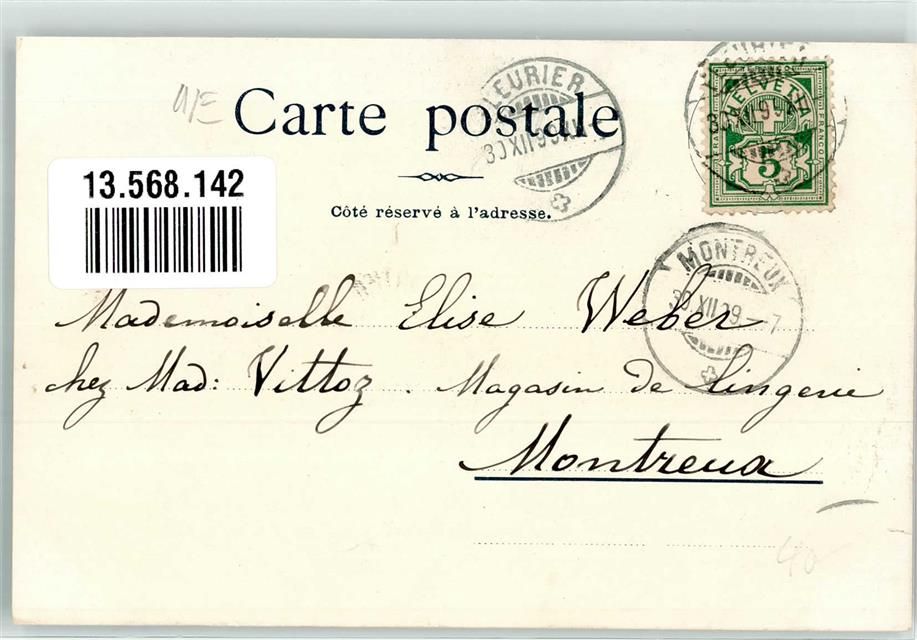 Carte postale
Côté réservé à l'adresse.
13.568.142
FLEURIER
30 XII 99
HELVETIA
FRANCO
5
MONTREUX
30 XII 99-7
Mademoiselle Elise Weber
chez Mad: Vittoz. Magasin de lingerie
Montreux
40